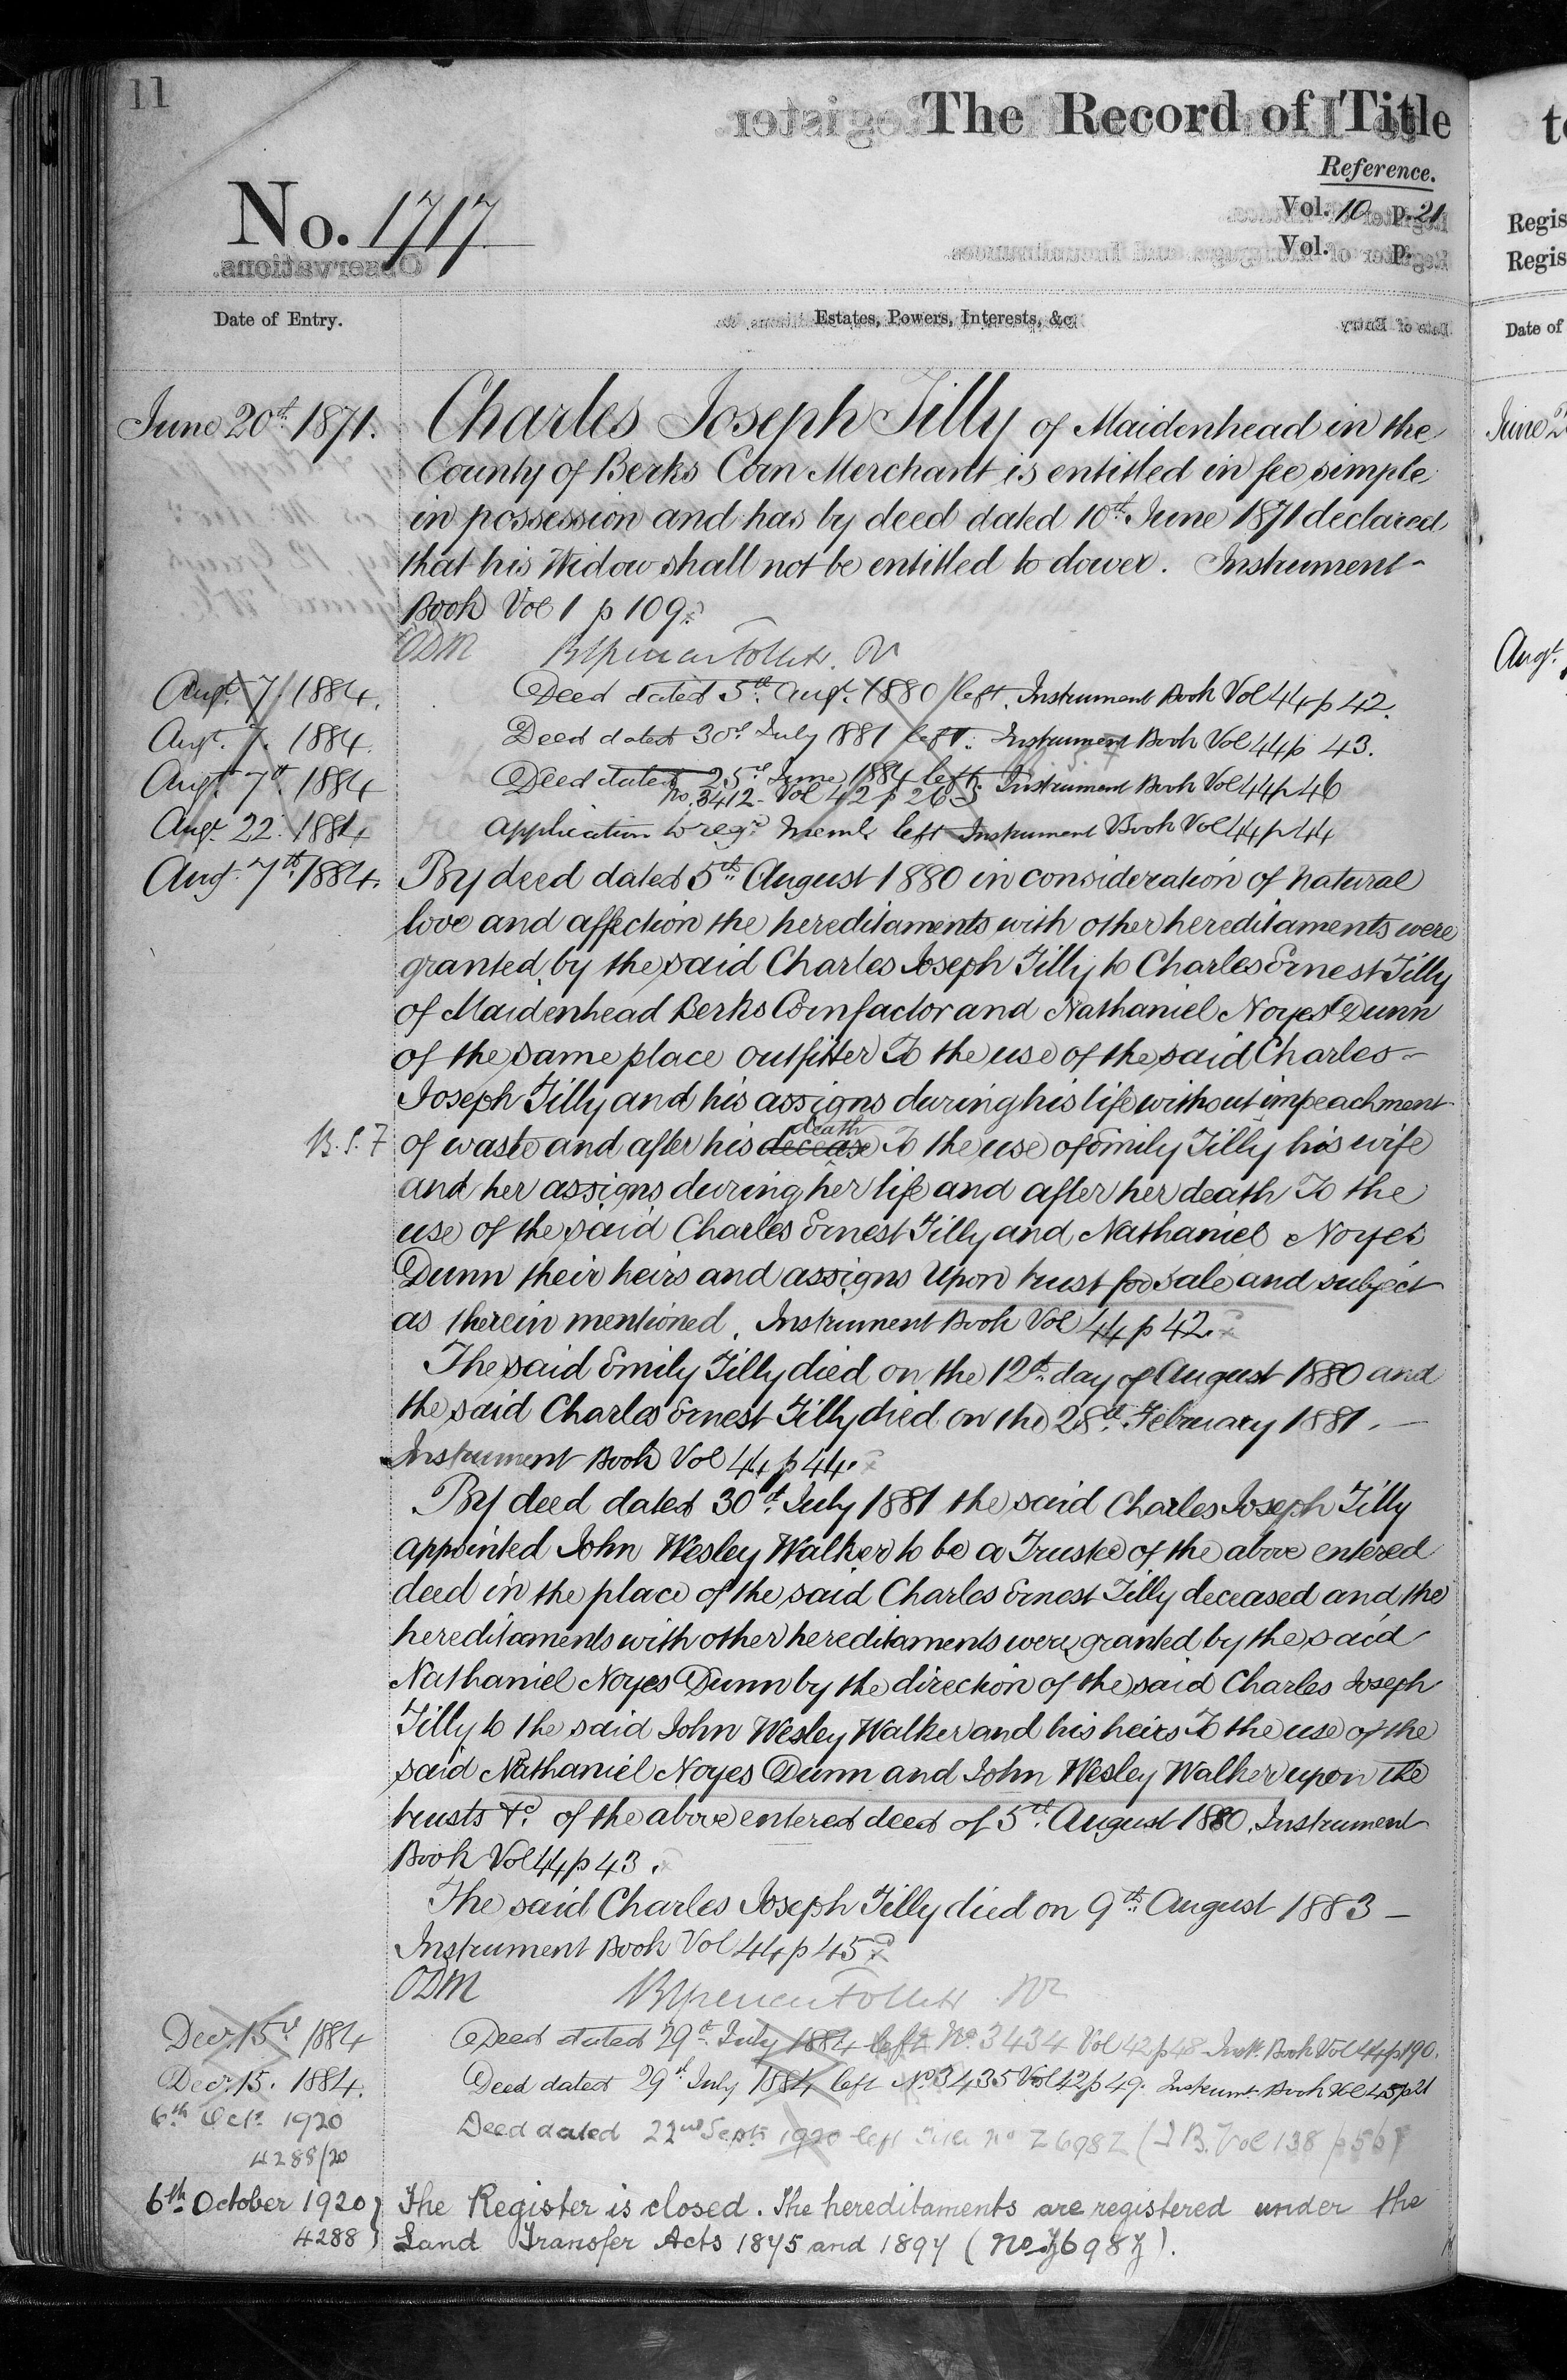 11
The Record of Title
Reference.
No. 1717
Vol. 10 p. 21
Vol. p.
Date of Entry.
Estates, Powers, Interests, &c.
June 20th 1871. Charles Joseph Tilly of Maidenhead in the
County of Berks Corn Merchant is entitled in fee simple
in possession and has by deed dated 10th June 1871 declared
that his Widow shall not be entitled to dower. Instrument
Book Vol 1 p 109.
ODM
Augt. 7 1884. Deed dated 5th Augt. 1880 left. Instrument Book Vol 44 p 42.
Augt. 7. 1884. Deed dated 30th July 1881 left. Instrument Book Vol 44 p 43.
Augt. 7th 1884 Deed dated 25th June 1884 left. Instrument Book Vol 44 p 46
No. 3412 - Vol 42 p 26
Augt. 22. 1884 Application to regr. Meml. left Instrument Book Vol 44 p 44
Augt. 7th 1884. By deed dated 5th August 1880 in consideration of natural
love and affection the hereditaments with other hereditaments were
granted by the said Charles Joseph Tilly to Charles Ernest Tilly
of Maidenhead Berks Cornfactor and Nathaniel Noyes Dunn
of the same place outfitter To the use of the said Charles
Joseph Tilly and his assigns during his life without impeachment
death
B.S.F of waste and after his decease To the use of Emily Tilly his wife
and her assigns during her life and after her death To the
use of the said Charles Ernest Tilly and Nathaniel Noyes
Dunn their heirs and assigns Upon trust for Sale and subject
as therein mentioned. Instrument Book Vol 44 p 42.
The said Emily Tilly died on the 12th day of August 1880 and
the said Charles Ernest Tilly died on the 28th February 1881. —
Instrument Book Vol 44 p 44.
By deed dated 30th July 1881 the said Charles Joseph Tilly
appointed John Wesley Walker to be a Trustee of the above entered
deed in the place of the said Charles Ernest Tilly deceased and the
hereditaments with other hereditaments were granted by the said
Nathaniel Noyes Dunn by the direction of the said Charles Joseph
Tilly to the said John Wesley Walker and his heirs To the use of the
said Nathaniel Noyes Dunn and John Wesley Walker upon the
trusts &c. of the above entered deed of 5th August 1880. Instrument
Book Vol 44 p 43.
The said Charles Joseph Tilly died on 9th August 1883 —
Instrument Book Vol 44 p 45
ODM
Decr. 15th 1884 Deed dated 29th July 1884 left No. 3434 Vol 42 p 48 Inst. Book Vol 44 p 190.
Decr. 15. 1884. Deed dated 29th July 1884 left No. 3435 Vol 42 p 49. Instrumt. Book Vol 45 p 21
6th Octr. 1920 Deed dated 22nd Sept. 1920 left Title No Z6987 (I.B. Vol 138 p 56)
4288/20
6th October 1920 } The Register is closed. The hereditaments are registered under the
4288 } Land Transfer Acts 1875 and 1897 (No Z6987).
to
Regis
Regis
Date of
June 2
Augt.